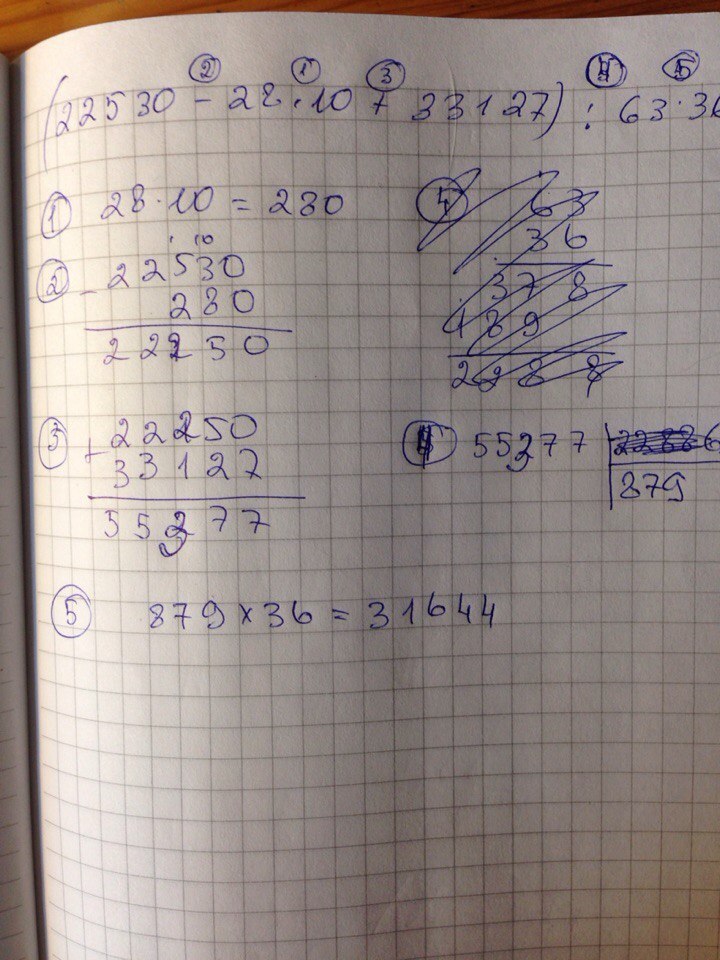 ② ① ③ ④ ⑤
(22530 - 28·10 + 33127) : 63·36
① 28·10 = 280
10
② - 22530
280
22250
③ + 22250
33127
55377
63
36
378
189
④ 55377 | 6
879
⑤ 879 × 36 = 31644